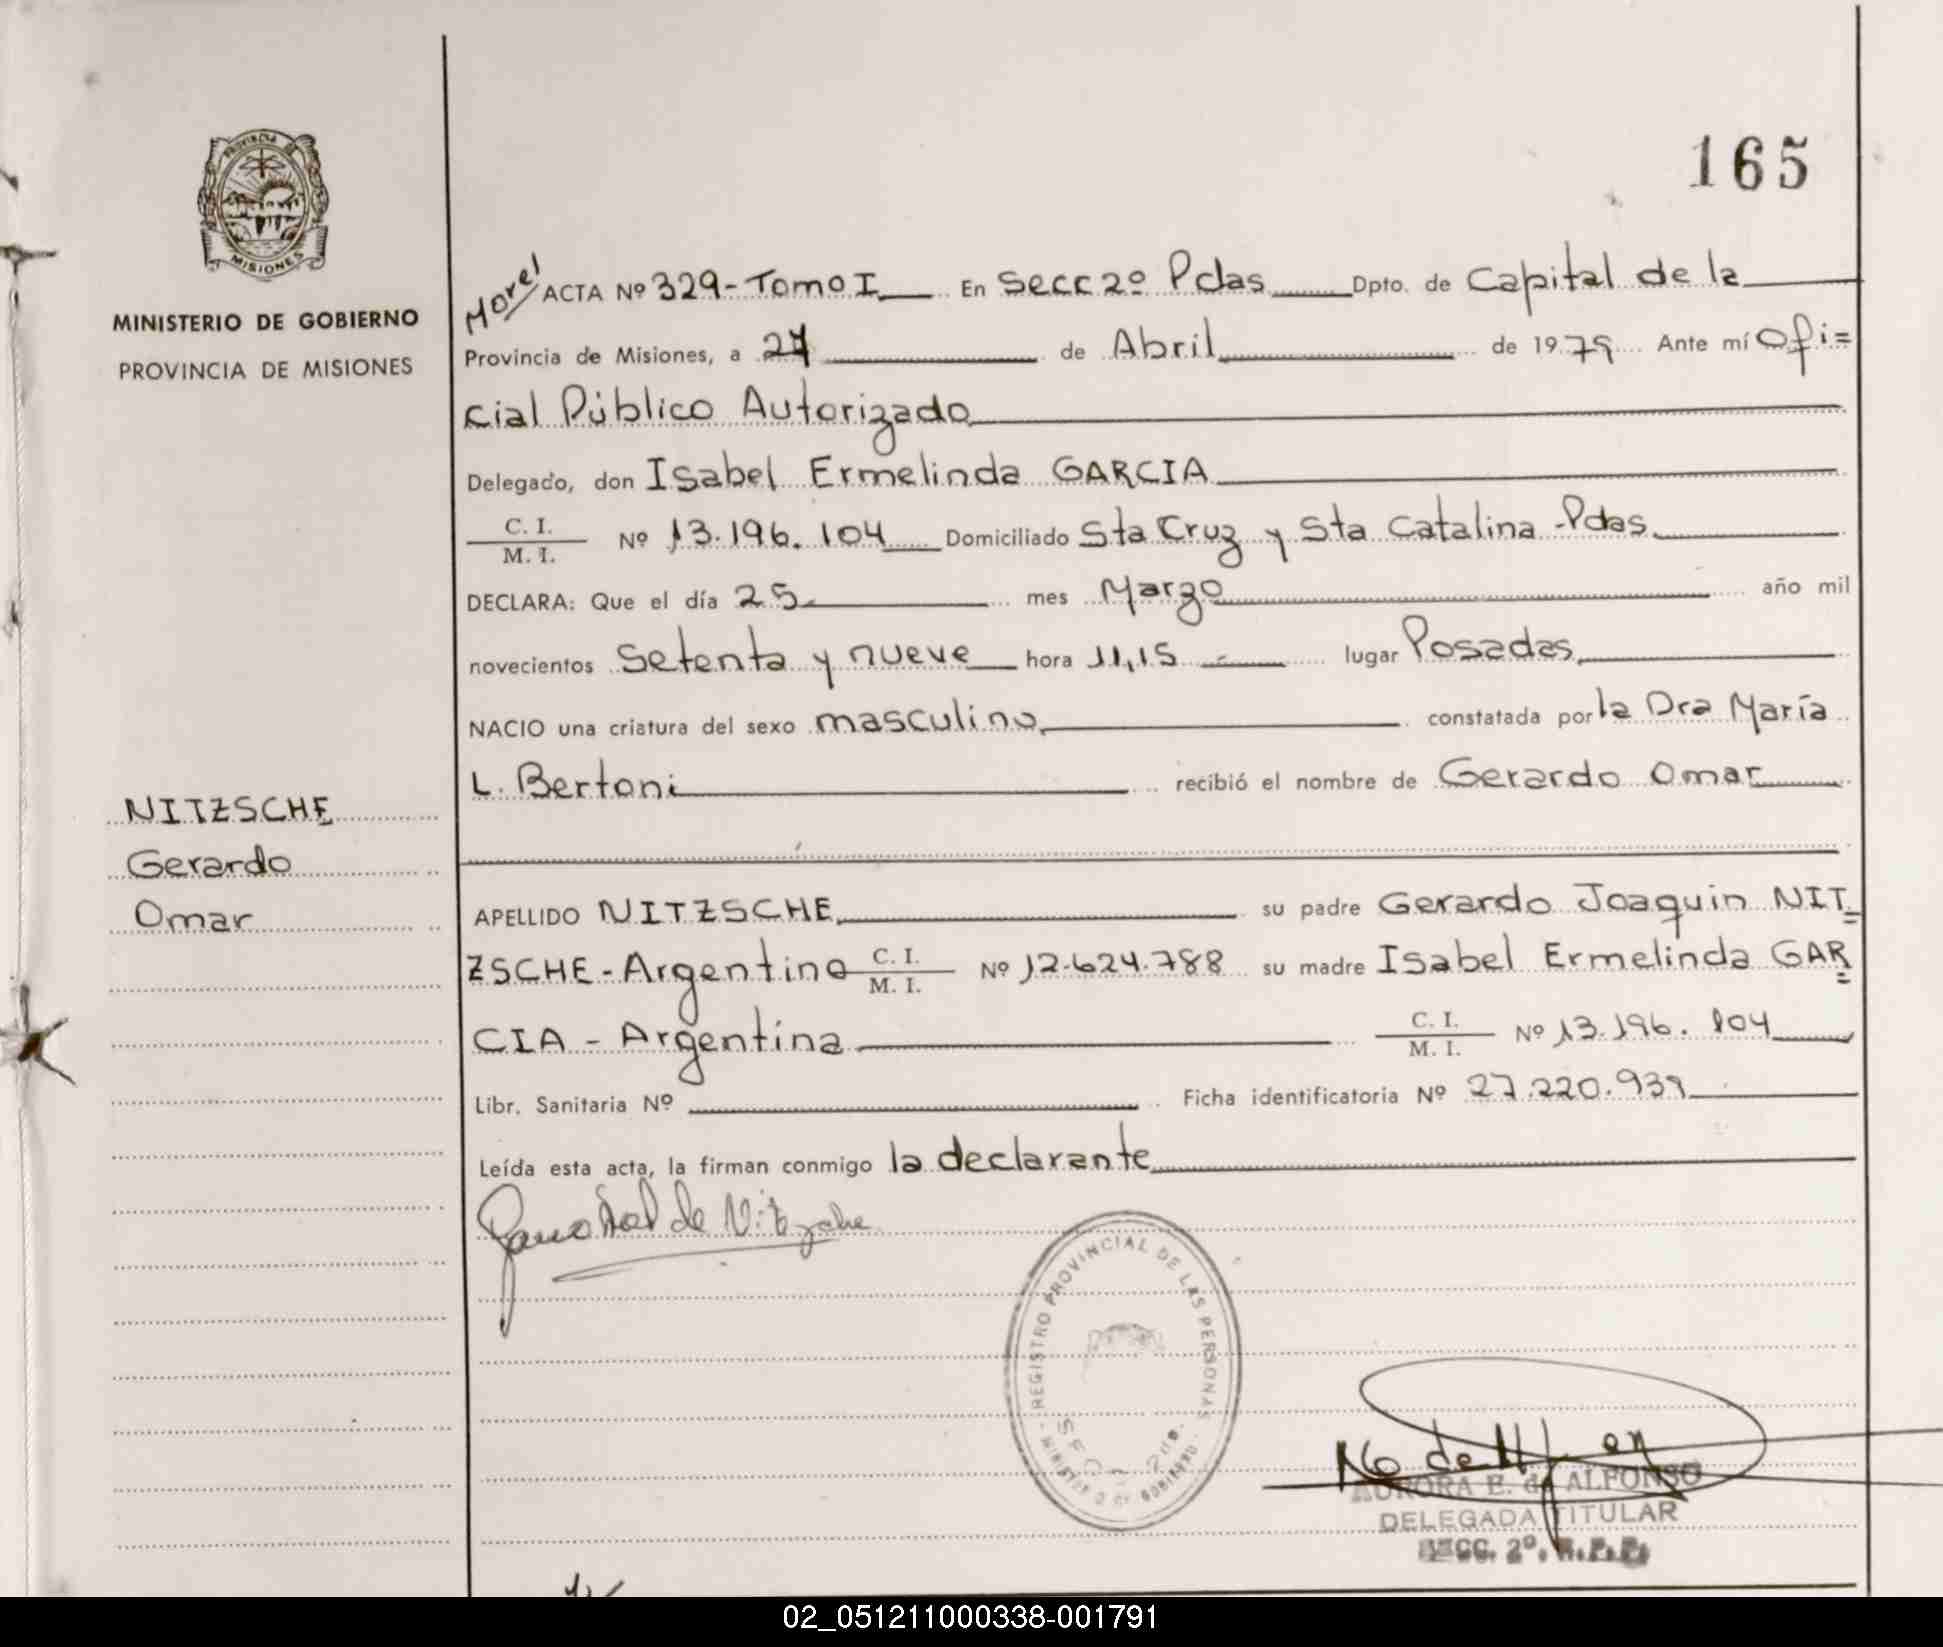 165
PROVINCIA DE
MISIONES
MINISTERIO DE GOBIERNO
PROVINCIA DE MISIONES
NITZSCHE
Gerardo
Omar
Morel ACTA Nº 329-Tomo I En Secc 2º Pdas Dpto. de Capital de la
Provincia de Misiones, a 27 de Abril de 1979 Ante mí Ofi=
cial Público Autorizado
Delegado, don Isabel Ermelinda GARCIA
C. I.
M. I. Nº 13.196.104 Domiciliado Sta Cruz y Sta Catalina-Pdas
DECLARA: Que el día 25 mes Marzo año mil
novecientos Setenta y nueve hora 11,15 lugar Posadas
NACIO una criatura del sexo masculino constatada por la Dra María
L. Bertoni recibió el nombre de Gerardo Omar
APELLIDO NITZSCHE su padre Gerardo Joaquin NIT=
ZSCHE-Argentino C. I. M. I. Nº 12.624.788 su madre Isabel Ermelinda GAR=
CIA - Argentina C. I. M. I. Nº 13.196.104
Libr. Sanitaria Nº Ficha identificatoria Nº 27.220.939
Leída esta acta, la firman conmigo la declarante
de Nitzsche
REGISTRO PROVINCIAL DE LAS PERSONAS
MINISTERIO DE GOBIERNO
AURORA E. de ALFONSO
DELEGADA TITULAR
SECC. 2º. R.P.P.
02_051211000338-001791